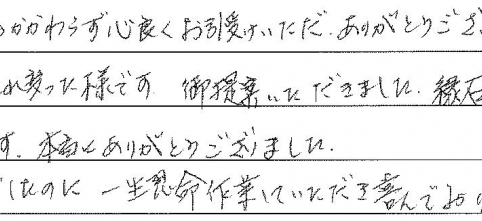 かかわらず心良くお引受けいただ、ありがとうござ
れ変った様です 御提案いただきました、縁石
す。本当にありがとうございました。
したのに 一生懸命作業していただき喜んでお